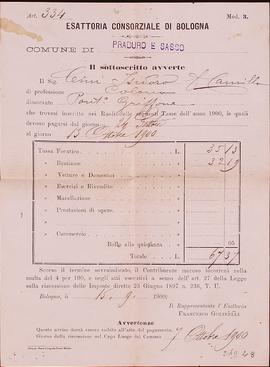 Art. 334 Mod. 3.
ESATTORIA CONSORZIALE DI BOLOGNA
COMUNE DI PRADURO E SASSO
Il sottoscritto avverte
Il Sig.
di professione Colono
dimorante Griffone
che trovasi inscritto nei Ruoli delle seguenti Tasse dell'anno 1900, le quali
devono pagarsi dal giorno
al giorno 13 Ottobre 1900
Tassa Focatico L. 35 13
» Bestiame » 32 19
» Vetture e Domestici »
» Esercizi e Rivendite »
» Macellazione »
» Prestazioni di opere »
» Commercio »
Bollo alla quietanza » 05
Totale L. 67 37
Scorso il termine sovraindicato, il Contribuente moroso incorrerà nella
multa del 4 per 100, e negli atti esecutivi a senso dell'art. 27 della Legge
sulla riscossione delle Imposte dirette 23 Giugno 1897 n. 236, T. U.
Bologna, 1900.
Il Rappresentante l'Esattoria
FRANCESCO
Avvertenze
Questo avviso dovrà essere esibito all'atto del pagamento.
Giorno della riscossione nel Capo Luogo del Comune 7 Ottobre 1900